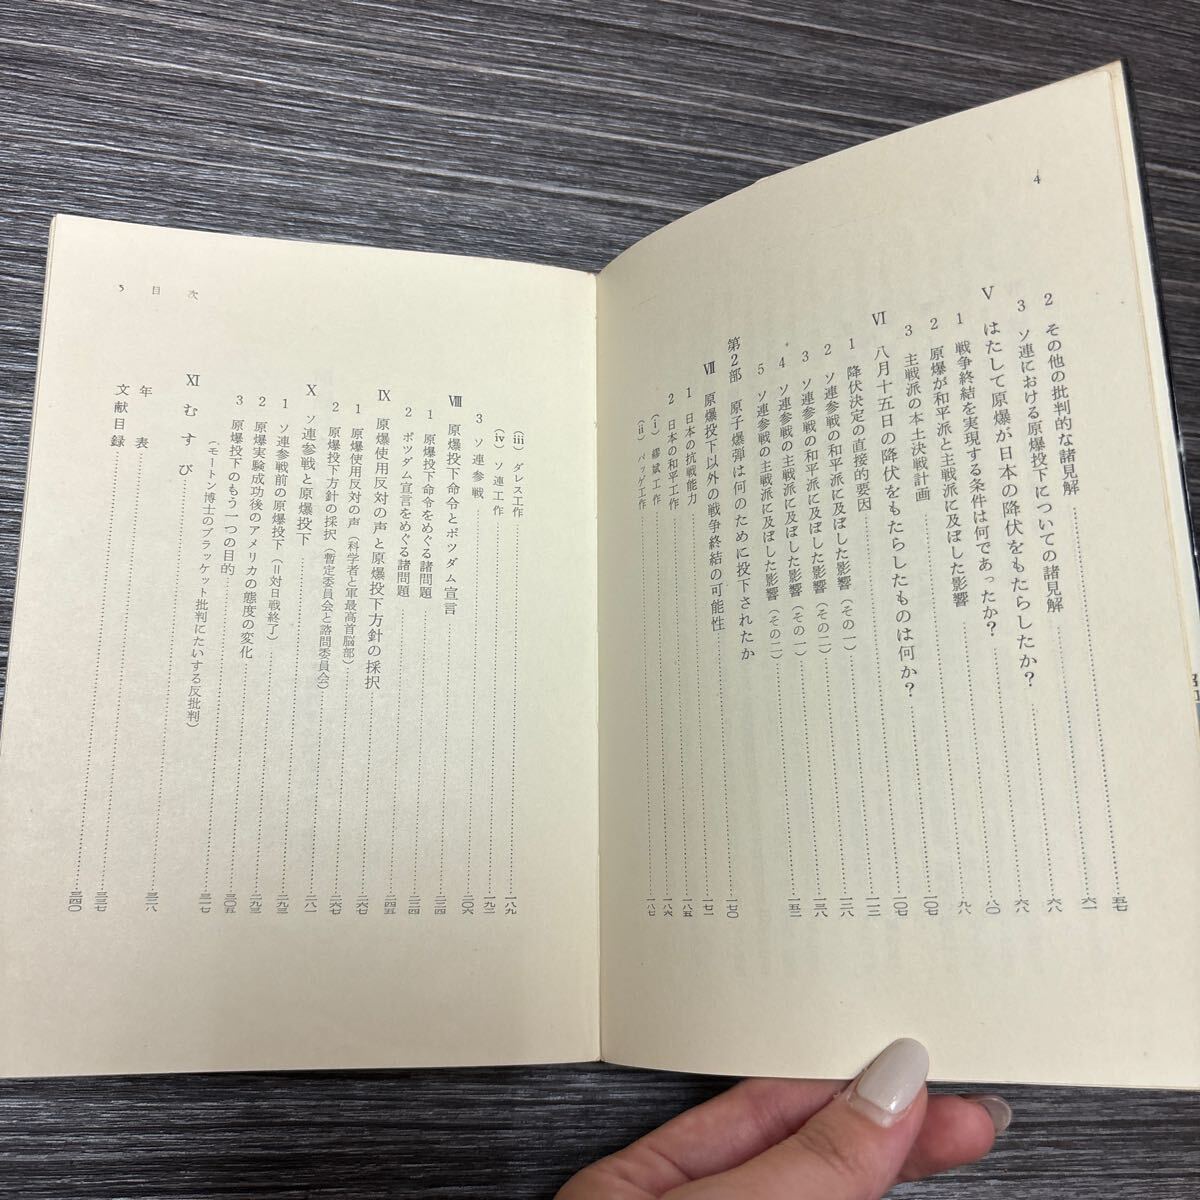 4
2 その他の批判的な諸見解……五七
3 ソ連における原爆投下についての諸見解……六一
Ⅴ はたして原爆が日本の降伏をもたらしたか?……六八
1 戦争終結を実現する条件は何であったか?……六八
2 原爆が和平派と主戦派に及ぼした影響……八〇
3 主戦派の本土決戦計画……九八
Ⅵ 八月十五日の降伏をもたらしたものは何か?……一〇七
1 降伏決定の直接的要因……一〇七
2 ソ連参戦の和平派に及ぼした影響(その一)……一一三
3 ソ連参戦の和平派に及ぼした影響(その二)……一三八
4 ソ連参戦の主戦派に及ぼした影響(その一)……一三八
5 ソ連参戦の主戦派に及ぼした影響(その二)……一五二
第2部 原子爆弾は何のために投下されたか
Ⅶ 原爆投下以外の戦争終結の可能性……一七〇
1 日本の抗戦能力……一七一
2 日本の和平工作……一八五
(ⅰ) 繆斌工作……一八六
(ⅱ) バッゲ工作……一八七
5 目次
(ⅲ) ダレス工作……一八九
(ⅳ) ソ連工作……一九二
3 ソ連参戦……二〇六
Ⅷ 原爆投下命令とポツダム宣言……二二四
1 原爆投下命令をめぐる諸問題……二二四
2 ポツダム宣言をめぐる諸問題……二四五
Ⅸ 原爆使用反対の声と原爆投下方針の採択……二六七
1 原爆使用反対の声(科学者と軍最高首脳部)……二六七
2 原爆投下方針の採択(暫定委員会と諮問委員会)……二八一
Ⅹ ソ連参戦と原爆投下……二九三
1 ソ連参戦前の原爆投下(=対日戦終了)……二九三
2 原爆実験成功後のアメリカの態度の変化……三〇五
3 原爆投下のもう一つの目的……三一七
(モートン博士のブラッケット批判にたいする反批判)
Ⅺ むすび……三二八
年表……三三七
文献目録……三四〇